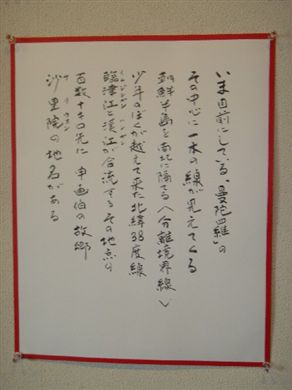 いま目前にしている「曼陀羅」の
その中心に一本の線が見えてくる
朝鮮半島を南北に隔てる〈分離境界線〉
少年のぼくが越えて来た北緯38度線
臨津江と漢江が合流するその地点の
百数十キの先に 申画伯の故郷
沙里院の地名がある